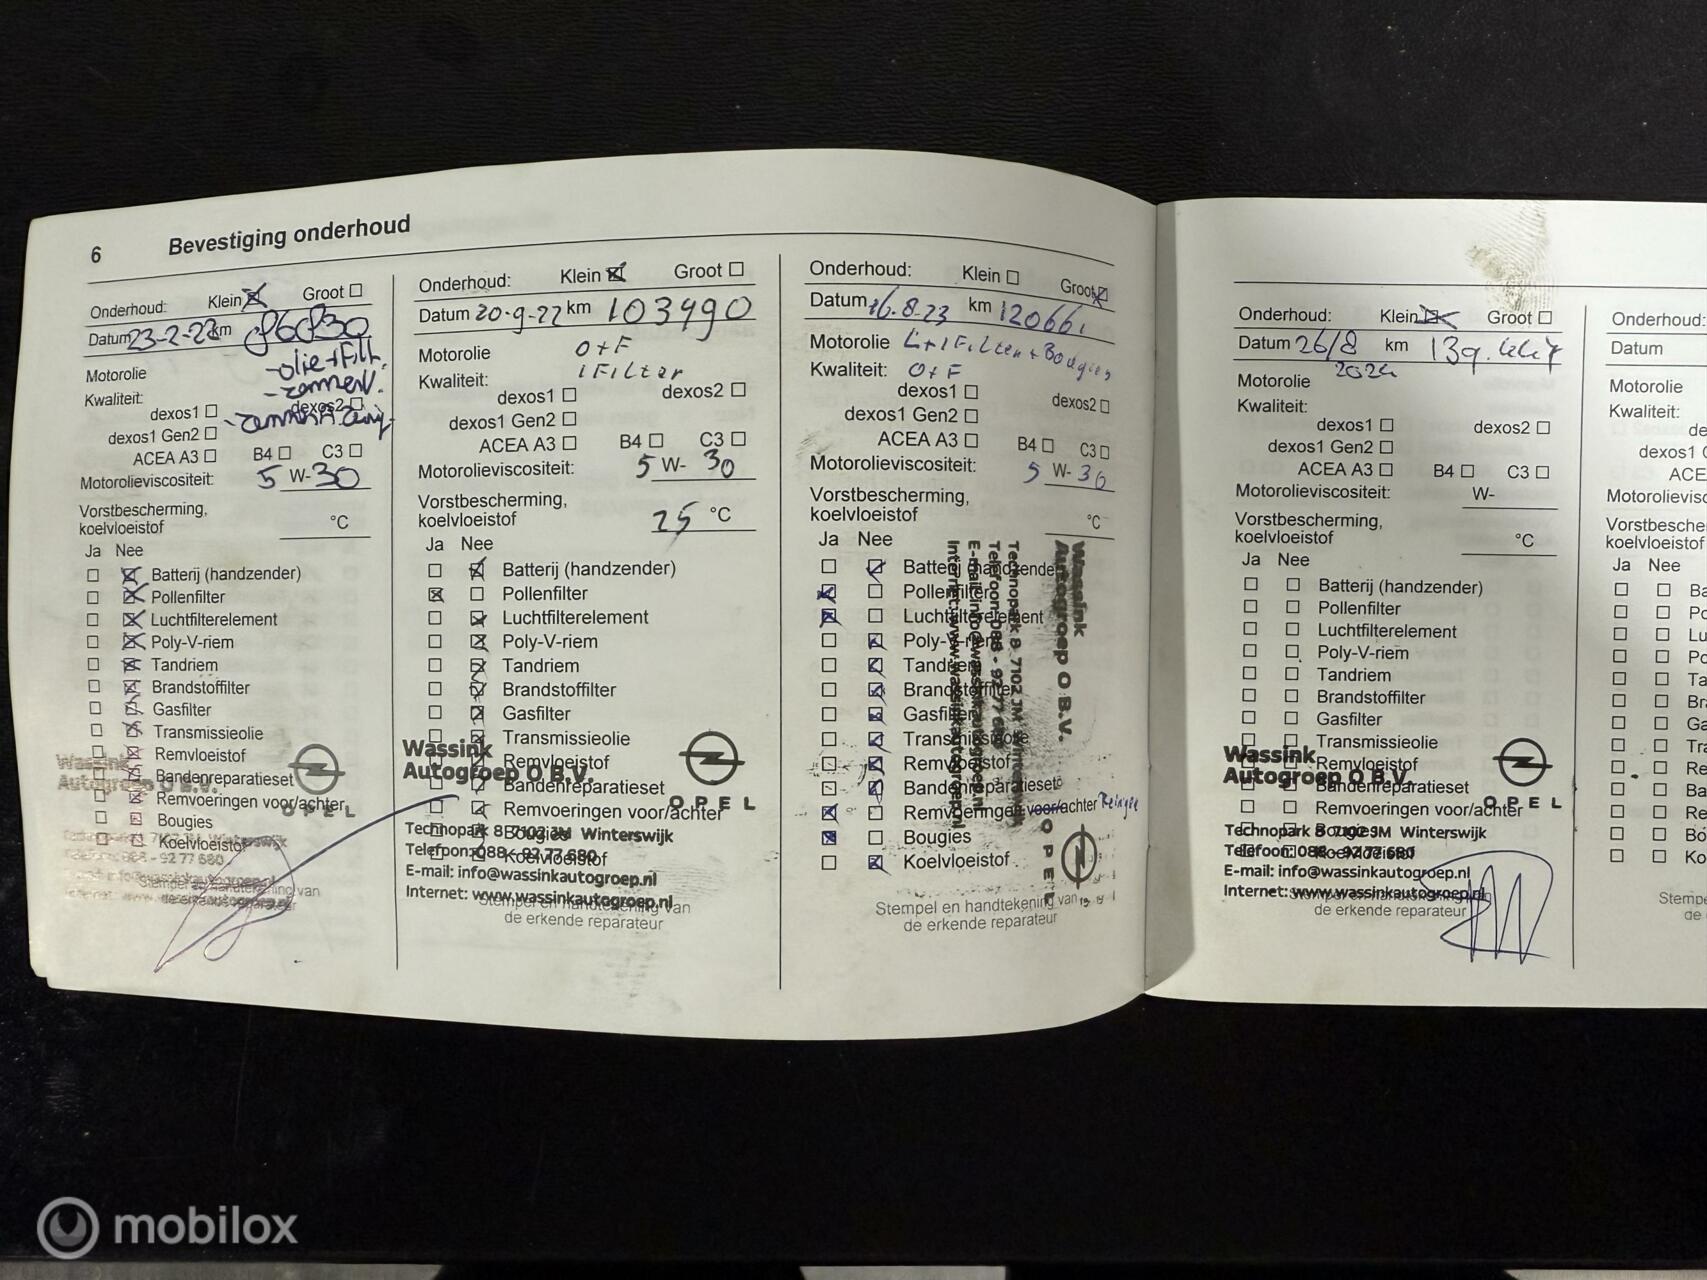 6 Bevestiging onderhoud
Onderhoud: Klein Groot
Datum 23-2-22 km 86830
-olie+Filt.
Motorolie
Kwaliteit:
dexos1 dexos2
dexos1 Gen2
ACEA A3 B4 C3
Motorolieviscositeit: 5 W-30
Vorstbescherming,
koelvloeistof °C
Ja Nee
Batterij (handzender)
Pollenfilter
Luchtfilterelement
Poly-V-riem
Tandriem
Brandstoffilter
Gasfilter
Transmissieolie
Remvloeistof
Bandenreparatieset
Remvoeringen voor/achter
Bougies
Koelvloeistof
Wassink
Autogroep O B.V.
OPEL
7102 JM Winterswijk
088 - 92 77 680
Stempel en handtekening van
de erkende reparateur
Onderhoud: Klein Groot
Datum 20-9-22 km 103490
Motorolie O+F
Kwaliteit: 1 Filter
dexos1 dexos2
dexos1 Gen2
ACEA A3 B4 C3
Motorolieviscositeit: 5 W- 30
Vorstbescherming,
koelvloeistof 25 °C
Ja Nee
Batterij (handzender)
Pollenfilter
Luchtfilterelement
Poly-V-riem
Tandriem
Brandstoffilter
Gasfilter
Transmissieolie
Remvloeistof
Bandenreparatieset
Remvoeringen voor/achter
Bougies
Koelvloeistof
Wassink
Autogroep O B.V.
OPEL
Technopark 8 7102 JM Winterswijk
Telefoon: 088 - 92 77 680
E-mail: info@wassinkautogroep.nl
Internet: www.wassinkautogroep.nl
Stempel en handtekening van
de erkende reparateur
Onderhoud: Klein Groot
Datum 16.8.23 km 120661
Motorolie L+I Filter + Bougies
Kwaliteit: O+F
dexos1 dexos2
dexos1 Gen2
ACEA A3 B4 C3
Motorolieviscositeit: 5 W-30
Vorstbescherming,
koelvloeistof °C
Ja Nee
Batterij (handzender)
Pollenfilter
Luchtfilterelement
Poly-V-riem
Tandriem
Brandstoffilter
Gasfilter
Transmissieolie
Remvloeistof
Bandenreparatieset
Remvoeringen voor/achter
Bougies
Koelvloeistof
Wassink
Autogroep O B.V.
Technopark 8 7102 JM Winterswijk
Telefoon: 088 - 92 77 680
E-mail: info@wassinkautogroep.nl
Internet: www.wassinkautogroep.nl
OPEL
Stempel en handtekening van
de erkende reparateur
Onderhoud: Klein Groot
Datum 26/8 km
2024
Motorolie
Kwaliteit:
dexos1 dexos2
dexos1 Gen2
ACEA A3 B4 C3
Motorolieviscositeit: W-
Vorstbescherming,
koelvloeistof °C
Ja Nee
Batterij (handzender)
Pollenfilter
Luchtfilterelement
Poly-V-riem
Tandriem
Brandstoffilter
Gasfilter
Transmissieolie
Remvloeistof
Bandenreparatieset
Remvoeringen voor/achter
Bougies
Koelvloeistof
Wassink
Autogroep O B.V.
OPEL
Technopark 8 7102 JM Winterswijk
Telefoon: 088 - 92 77 680
E-mail: info@wassinkautogroep.nl
Internet: www.wassinkautogroep.nl
Stempel en handtekening van
de erkende reparateur
Onderhoud:
Datum
Motorolie
Kwaliteit:
de
dexos1 G
ACE
Motorolievisc
Vorstbescher
koelvloeistof
Ja Nee
Ba
Po
Lu
Po
Ta
Br
Ga
Tra
Re
Ba
Re
Bo
Ko
Stemp
de
mobilox